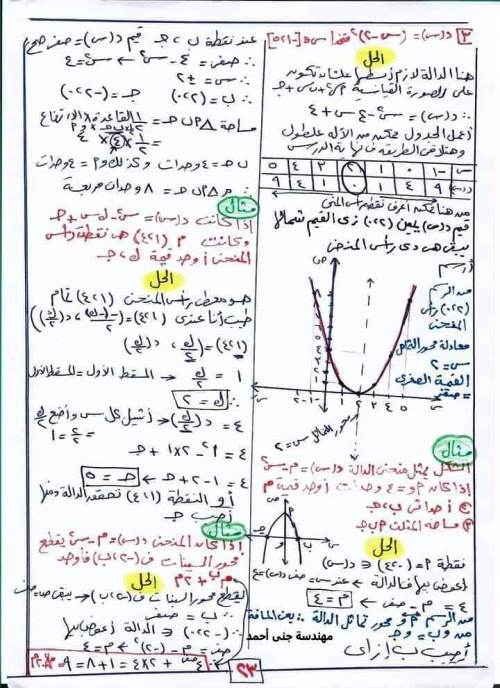 ٣ د(س) = (س-٢)² متخذا س ∈ [-١، ٥]
الحل
هنا الدالة لازم أبسطها علشان تكون
على الصورة القياسية م س² + ب س + جـ
∴ د(س) = س² - ٤س + ٤
أعمل الجدول ممكن من الآلة على طول
س -١ ٠ ١ ٢ ٣ ٤ ٥
د(س) ٩ ٤ ١ ٠ ١ ٤ ٩
من هنا ممكن أعرف نقطة رأس المنحنى
قيم د(س) يمين (٢،٠) زي القيم شمالا
يبقى هي دي رأس المنحنى
أرسم
من الرسم
(٢،٠) رأس
المنحنى
معادلة محور التماثل
س = ٢
القيمة الصغرى
= صفر
محور التماثل س = ٢
مثال
الشكل يمثل منحنى الدالة د(س) = م - س²
إذا كان م و = ٤ وحدات أوجد قيمة م
② إحداثى ب، جـ
③ مساحة المثلث م ب جـ
الحل
نقطة م = (٠،٤) ∈ د(س)
أعوض بيها في الدالة ← عند س = صفر د(س) = ٤
٤ = م - صفر ← م = ٤
من الرسم م و محور تماثل الدالة ∴ يعني المسافة
من و ب = و جـ
أجيب ب إزاى
عند نقطة ب، جـ قيم د(س) = صفر
∴ صفر = ٤ - س² ← س² = ٤
∴ س = ±٢
∴ ب = (٢،٠) جـ = (-٢،٠)
مساحة △ م ب جـ = ١/٢ القاعدة × الارتفاع
= ١/٢ × ب جـ × و م
= ١/٢ × ٤ × ٤
ب جـ = ٤ وحدات وكذلك و م = ٤ وحدات
∴ م △ م ب جـ = ٨ وحدات مربعة
مثال
إذا كانت د(س) = س² - ك س + جـ
وكانت م (١،٤) هى نقطة رأس
المنحنى أوجد قيمة ك، جـ
الحل
هو معطى رأس المنحنى (١،٤) تمام
طيب أنا عندى (١،٤) = (-(-ك)/٢، د(ك/٢))
(١،٤) = (ك/٢، د(ك/٢))
١ = ك/٢ ← المسقط الأول = المسقط الأول
∴ ك = ٢
٤ = د(ك/٢) ← أشيل كل س وأضع ك/٢
= ٢/٢ = ١
٤ = ١² - ٢×١ + جـ
٤ = ١ - ٢ + جـ ← جـ = ٥
أو النقطة (١،٤) تحقق الدالة ومنها
أجيب جـ
مثال
إذا كان المنحنى د(س) = م - س² يقطع
محور السينات فى (-٢، ب) فأوجد
الحل
يقطع محور السينات فى (-٢، ب) ← يبقى ص = صفر
∴ ب = صفر
∴ (-٢،٠) ∈ الدالة أعوض بيها
صفر = م - (-٢)² ← م = ٤
مهندسة جنى أحمد
٢٣